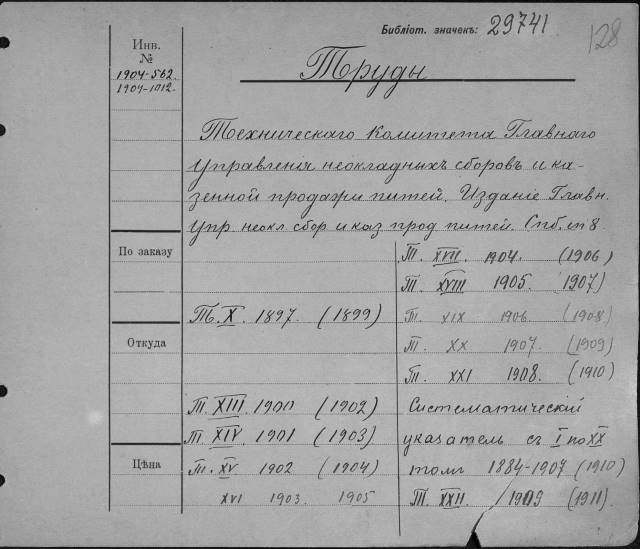 Библіот. значекъ: 29741
128
Инв.
№
1904-562.
1904-1012.
Труды
Техническаго Комитета Главнаго
Управленія неокладныхъ сборовъ и ка-
зенной продажи питей. Изданіе Главн.
Упр. неокл. сбор и каз. прод питей. Спб. in 8.
По заказу
Откуда
Цѣна
Т. X. 1897. (1899)
Т. XIII. 1900 (1902)
Т. XIV. 1901 (1903)
Т. XV 1902 (1904)
XVI 1903. 1905
Т. XVII. 1904. (1906)
Т. XVIII 1905. (1907)
Т. XIX 1906 (1908)
Т. XX 1907. (1909)
Т. XXI 1908. (1910)
Систематическій
указатель съ I по XX
томъ 1884-1907 (1910)
Т. XXII. 1909 (1911).